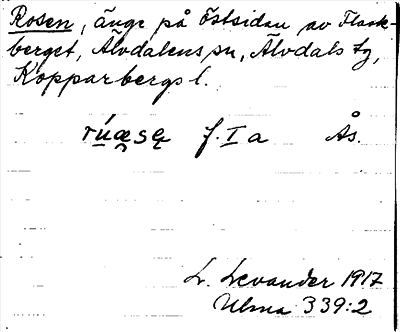 Rosen, änge på östsidan av Flack-
berget, Älvdalens sn, Älvdals tg,
Kopparbergs l.
rúæsę f. I a Ås.
L. Levander 1917
Ulma 339:2